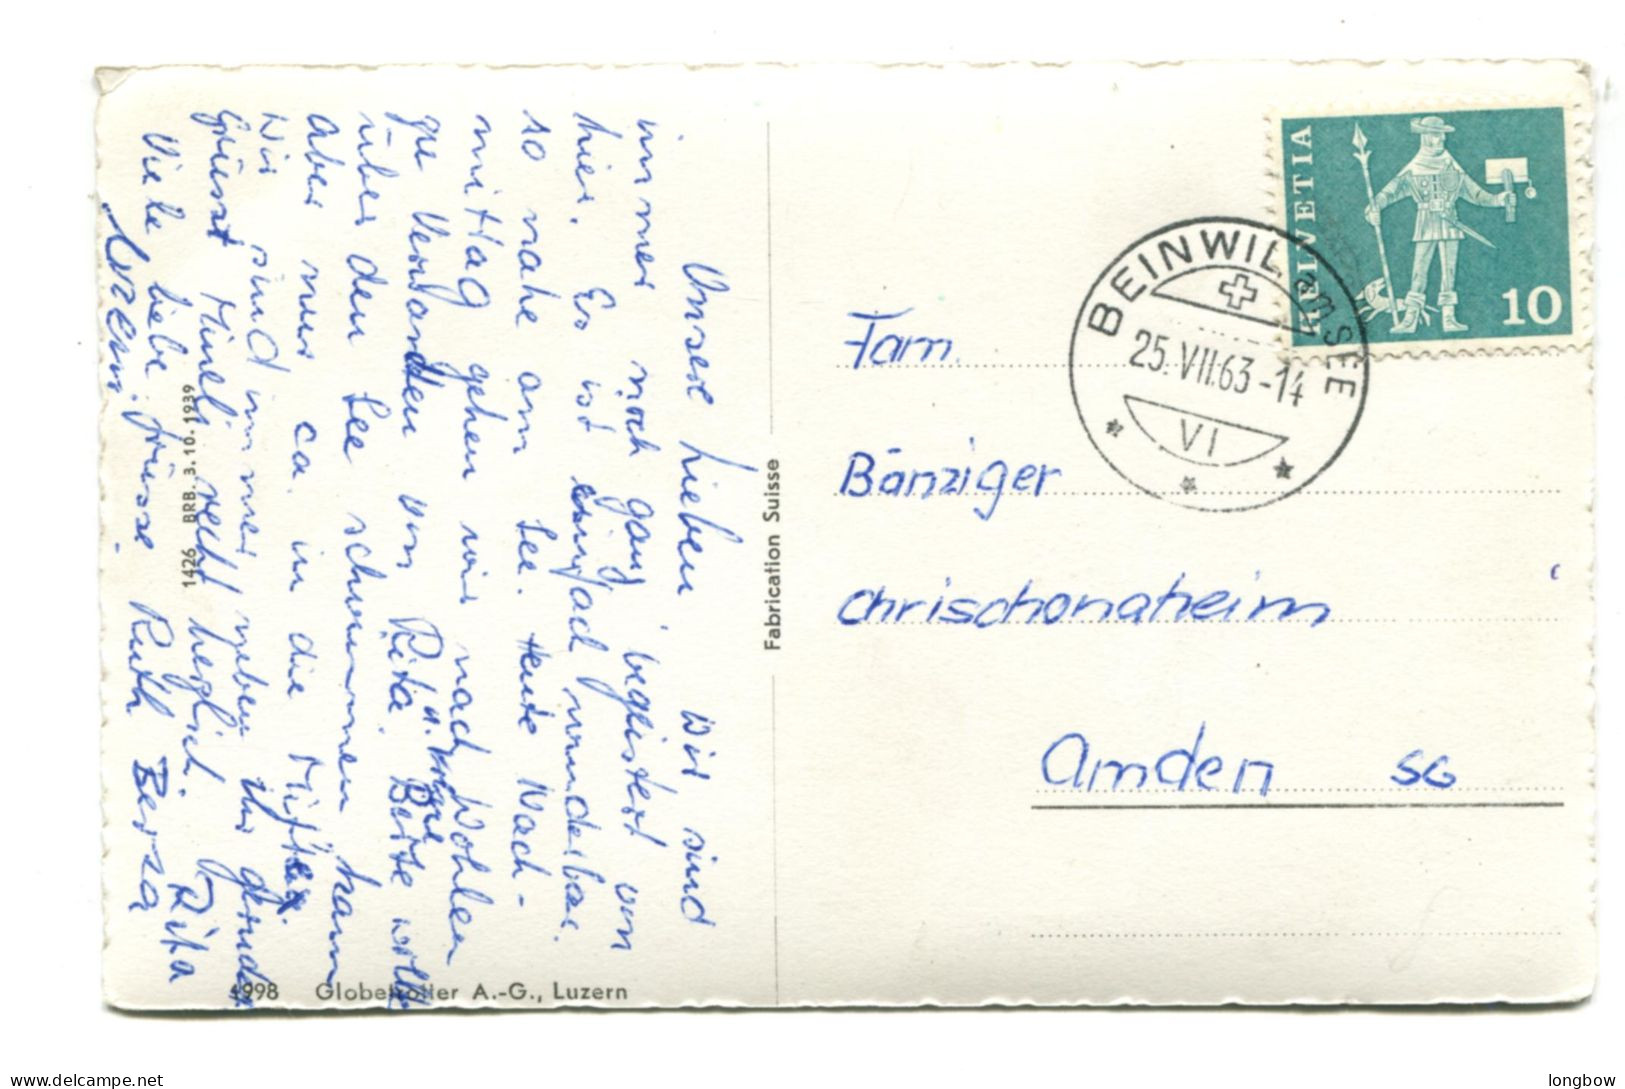 Unsere Lieben Wir sind
immer noch ganz begeistert von
hier. Es ist einfach wunderbar
so nahe am See. Heute Nach-
mittag gehen wir nach Wohlen
zu Verwandten von Rita. Berte
über den See schwimmen kann
aber nur ca. in die Mitte.
Wir sind immer neben ihr
Grüsst Mineli recht herzlich. Rita
Viele liebe Grüsse Ruth
1426 BRB. 3.10.1939
4998 Globetrotter A.-G., Luzern
Fabrication Suisse
HELVETIA
10
BEINWIL am SEE
25.VII.63-14
VI
Fam.
Bänziger
Chrischonaheim
Amden SG
longbow
delcampe.net